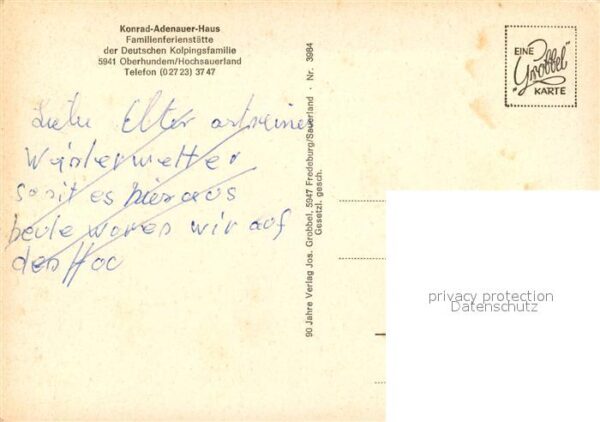 Konrad-Adenauer-Haus
Familienferienstätte
der Deutschen Kolpingsfamilie
5941 Oberhundem/Hochsauerland
Telefon (02723) 3747
EINE
"Grobbel"
KARTE
Elter
Winterwetter
es hier aus
heute waren wir auf
der Hoc
90 Jahre Verlag Jos. Grobbel, 5947 Fredeburg/Sauerland · Nr. 3984
Gesetzl. gesch.
privacy protection
Datenschutz